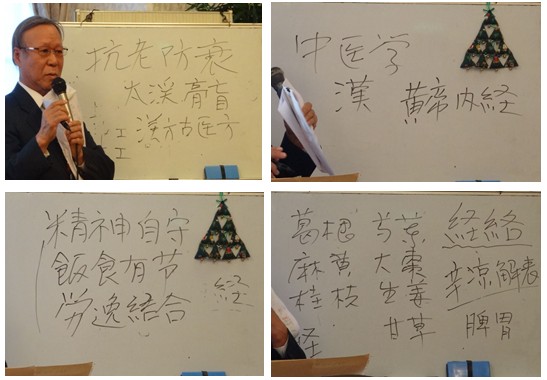 抗老防衰
太渓膏肓
漢方古医方
中医学
漢 黄帝内経
精神自守
飯食有节
労逸結合
経
葛根 芍薬 経絡
麻黄 大棗 辛涼解表
桂枝 生姜
甘草 脾胃
経